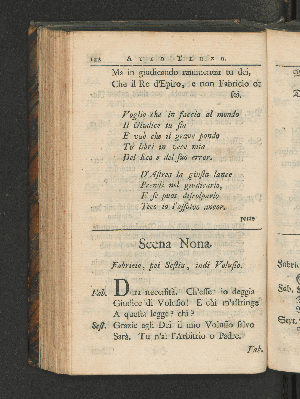 122 ATTO TERZO.
Ma in giudicando rammentar tu dei,
Che il Re d'Epiro, e non Fabricio or
sei.
Voglio che in faccia al mondo
Il Giudice tu sia
E vuò che il grave pondo
Tu libri in vece mia
Del suo error.
D'Astrea la giusta lance
Prendi nel giudicarlo,
E se puoi discolparlo
Teco io l'assolvo ancor.
parte
Scena Nona.
Fabricio, poi Sestia, indi Volusio.
Fab. Dura necessità. Ch'esser io deggia
Giudice di Volusio! E chi m'astringe
A questa legge? chi?
Sest. Grazie agli Dei il mio Volusio salvo
Sarà. Tu n'ai l'Arbitrio o Padre.
Fab.
Fabric.
Fab.
Sest.